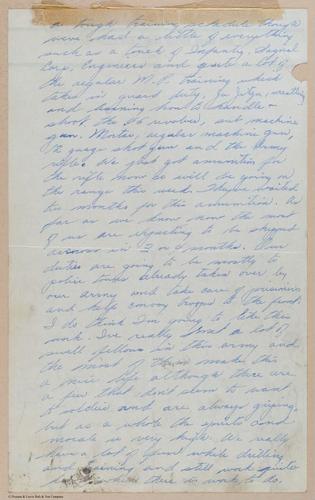 a tough training schedule though
we've had a little of everything
such as a touch of Infantry, Signal
Corp, Engineers and quite a bit of
the regular M.P. training which
takes in guard duty, Ju Jitsu, wrestling
and learning how to handle &
shoot the 45 revolver, sub machine
gun, Mortar, regular machine gun,
12 guage shot gun and the Army
rifle. We just got ammunition for
the rifle now so will be going on
the range this week. They've waited
two months for this ammunition. As
far as we know now the most
of us are expecting to be shipped
across in 2 or 3 months. Our
duties are going to be mostly to
police towns already taken over by
our army and take care of prisoners
and keep convoy traffic to the front.
I do think I'm going to like this
work. I've really met a lot of
swell fellows in this army and
the most of them make this
a nice life although there are
a few that don't seem to want
to soldier and are always griping,
but as a whole the spirits and
morale is very high. We really
have a lot of fun while drilling
and training and still work quite
hard when there is work to do.